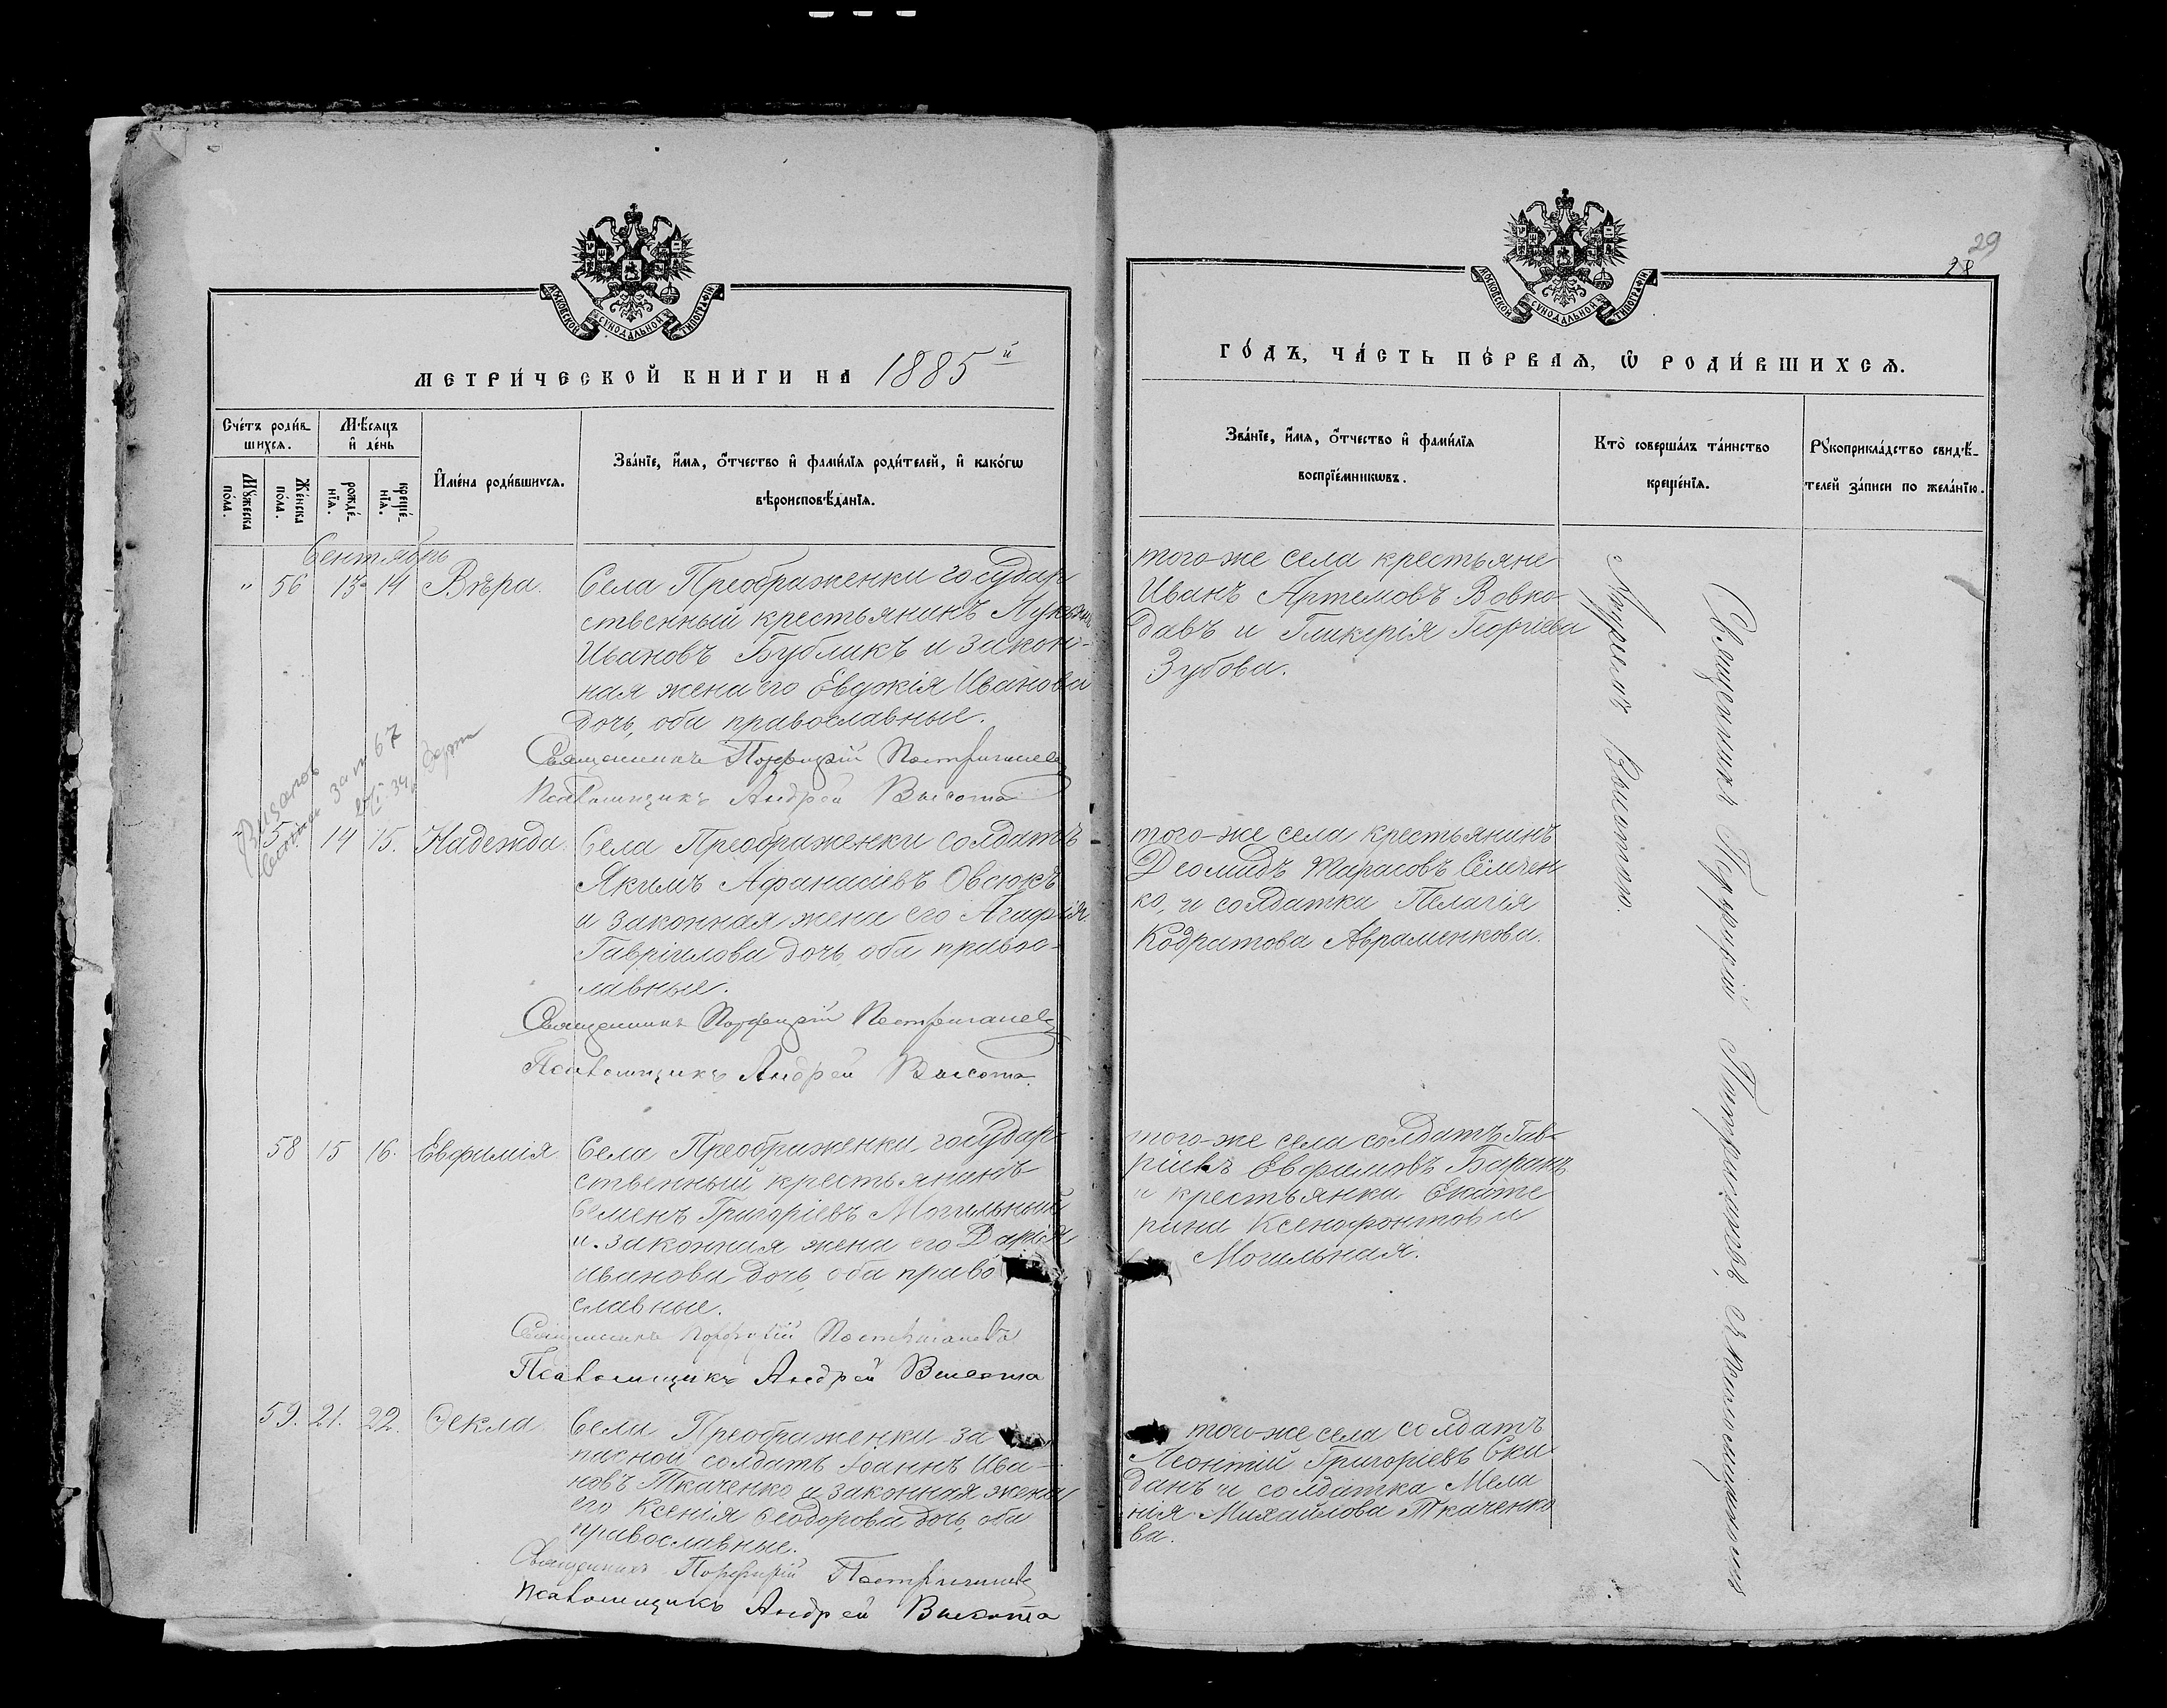 МОСКОВСКОЙ СУНОДАЛЬНОЙ ТИПОГРАФІИ
МЕТРИ́ЧЕСКОЙ КНИ́ГИ НА 1885 й
Сче́тъ роди́в
шихся.
Мѣ́сяцъ
и҆ де́нь
Мꙋ́жеска
по́ла.
Же́нска
по́ла.
рожде́-
нїѧ.
креще́-
нїѧ.
И҆мена̀ роди́вшихся.
Зва́нїе, и҆́мѧ, ѻ҆́тчество и҆ фами́лїѧ роди́телей, и҆ како́гѡ
вѣроисповѣ́данїѧ.
Сентябрь
" 56 13 14 Вѣра.
Села Преображенки государ
ственный крестьянинъ Лукьянъ
Ивановъ Бубликъ и закон-
ная жена его Евдокія Иванова
дочь, оба православные.
Священникъ Порфирій
Псаломщикъ Андрей Высота
14 15. Надежда.
Села Преображенки солдатъ
Якимъ Афанасіевъ Овсюкъ
и законная жена его Агафія
Гавріилова дочь, оба право-
лавные.
Священникъ Порфирій
Псаломщикъ Андрей Высота.
58 15 16. Евфимія.
Села Преображенки государ-
ственный крестьянинъ
Семенъ Григоріевъ Могильный
и законная жена его Дарія
Иванова дочь, оба право
славные.
Священникъ Порфирій
Псаломщикъ Андрей Высота
59. 21. 22. Ѳекла
Села Преображенки за
пасной солдатъ Іоаннъ Ива-
новъ Ткаченко и законная жена
его Ксенія Ѳеодорова дочь, оба
православные.
Священникъ Порфирій
Псаломщикъ Андрей Высота
29
28
МОСКОВСКОЙ СУНОДАЛЬНОЙ ТИПОГРАФІИ
ГО́ДЪ, ЧА́СТЬ ПЕ́РВАѦ, Ѡ҆ РОДИ́ВШИХСѦ.
Зва́нїе, и҆́мѧ, ѻ҆́тчество и҆ фами́лїѧ
воспрїе́мникѡвъ.
Кто̀ соверша́лъ та́инство
креще́нїѧ.
Рꙋкоприкла́дство свидѣ́-
телей за́писи по жела́нїю.
того-же села крестьяне
Иванъ Артемовъ Вовко-
давъ и Гликерія Георгіева
Зубова.
того-же села крестьянинъ
Деомидъ Тарасовъ Семчен
ко, и солдатка Пелагія
Кодратова Авраменкова.
того-же села солдатъ Гав-
ріилъ Евфимовъ Баранъ
и крестьянка Екате
рина Ксенофонтова
Могильная.
того-же села солдатъ
Леонтій Григоріевъ Ски
данъ и солдатка Мела
нія Михайлова Ткаченко
ва.
Священникъ Порфирій
Андреемъ Высотою.